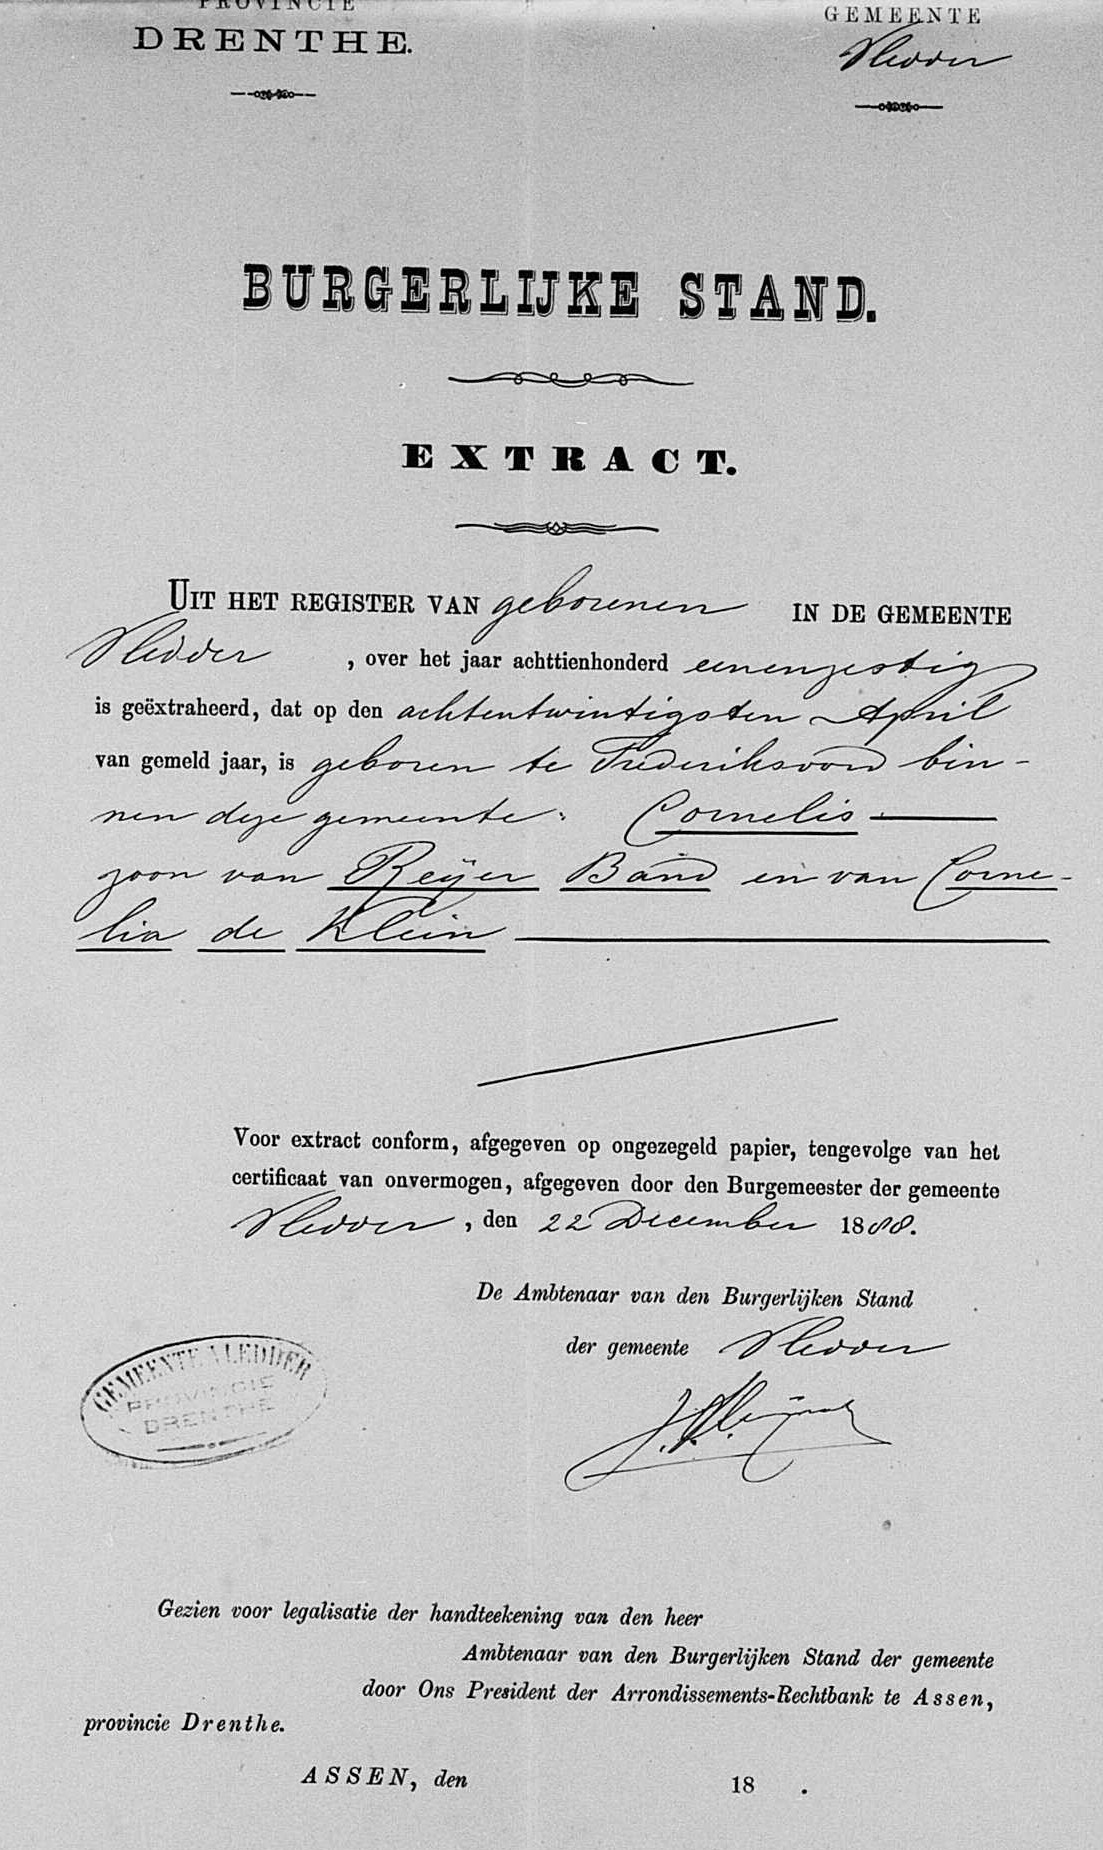 PROVINCIE
DRENTHE.
GEMEENTE
Vledder
BURGERLIJKE STAND.
EXTRACT.
UIT HET REGISTER VAN geborenen IN DE GEMEENTE
Vledder , over het jaar achttienhonderd eenenzestig
is geëxtraheerd, dat op den achtentwintigsten April
van gemeld jaar, is geboren te Frederiksoord bin-
nen deze gemeente: Cornelis
zoon van Reijer Band en van Corne-
lia de Klein
Voor extract conform, afgegeven op ongezegeld papier, tengevolge van het
certificaat van onvermogen, afgegeven door den Burgemeester der gemeente
Vledder , den 22 December 1888.
De Ambtenaar van den Burgerlijken Stand
der gemeente Vledder
GEMEENTE VLEDDER
PROVINCIE
DRENTHE
Gezien voor legalisatie der handteekening van den heer
Ambtenaar van den Burgerlijken Stand der gemeente
door Ons President der Arrondissements-Rechtbank te Assen,
provincie Drenthe.
ASSEN, den 18 .